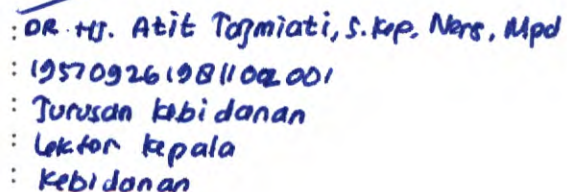 : DR. Hj. Atit Tajmiati, S.Kep, Ners, Mpd
: 195709261981102001
: Jurusan kebidanan
: Lektor kepala
: Kebidanan